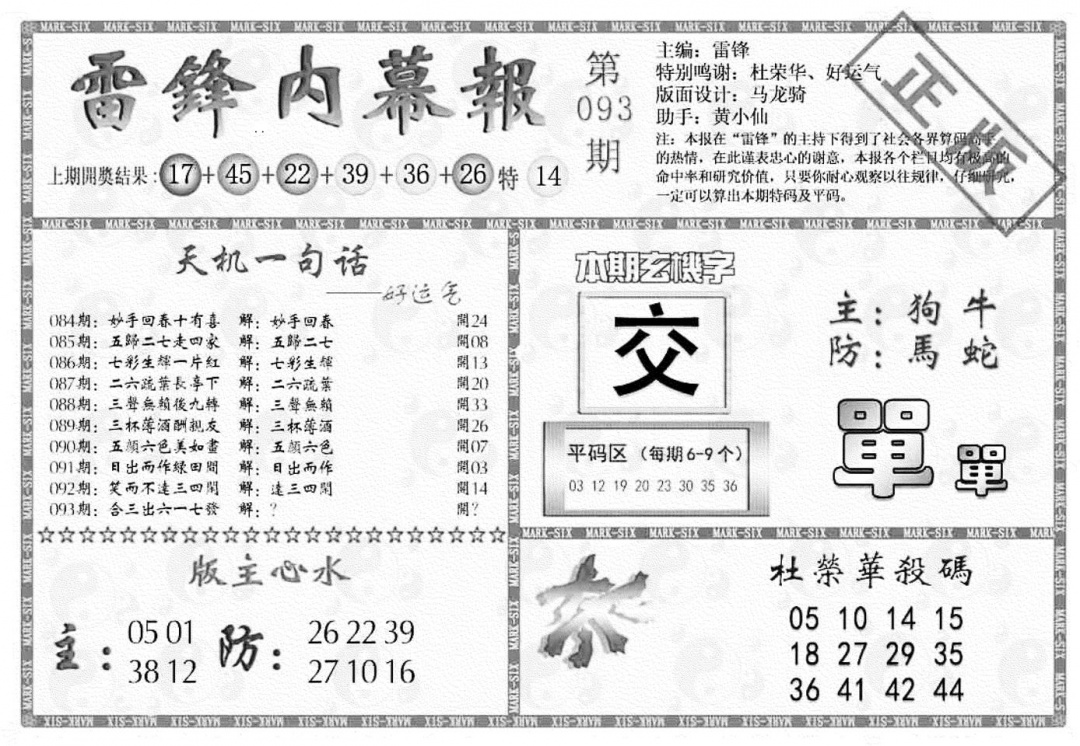 MARK-SIX
雷鋒内幕報
第
093
期
主编：雷锋
特别鸣谢：杜荣华、好运气
版面设计：马龙骑
助手：黄小仙
注：本报在“雷锋”的主持下得到了社会各界算码高手
的热情，在此谨表忠心的谢意，本报各个栏目均有极高的
命中率和研究价值，只要你耐心观察以往规律，仔细研究，
一定可以算出本期特码及平码。
正版
上期開獎结果：17+45+22+39+36+26特 14
天机一句话
——好运气
084期：妙手回春十有喜 解：妙手回春 開24
085期：五歸二七走四家 解：五歸二七 開08
086期：七彩生輝一片紅 解：七彩生輝 開13
087期：二六疏葉長亭下 解：二六疏葉 開20
088期：三聲無賴後九轉 解：三聲無賴 開33
089期：三杯薄酒酬親友 解：三杯薄酒 開26
090期：五顔六色美如畫 解：五顔六色 開07
091期：日出而作緑田間 解：日出而作 開03
092期：笑而不達三四閒 解：達三四閒 開14
093期：合三出六一七發 解：? 開?
☆☆☆☆☆☆☆☆☆☆☆☆☆☆☆☆☆☆☆☆☆☆☆
本期玄機字
交
主：狗 牛
防：馬 蛇
單 單
平码区（每期6-9个）
03 12 19 20 23 30 35 36
版主心水
主：
05 01
38 12
防：
26 22 39
27 10 16
杀
杜榮華殺碼
05 10 14 15
18 27 29 35
36 41 42 44